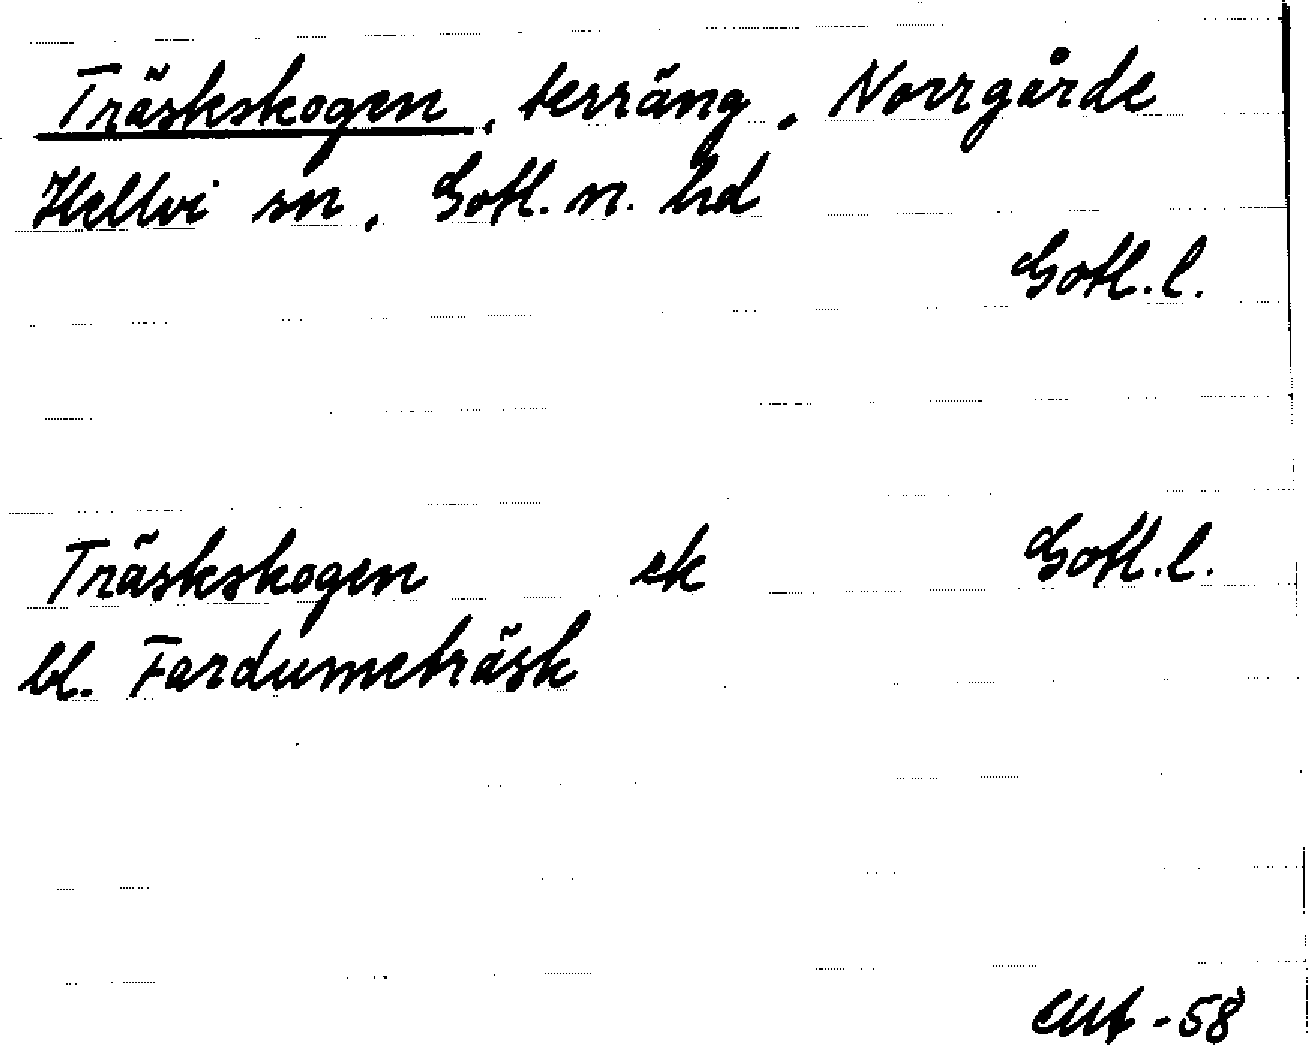 Träskskogen, terräng, Norrgårde
Hellvi sn, Gotl. n. hd
Gotl. l.
Träskskogen ek Gotl. l.
bl. Fardumeträsk
-58